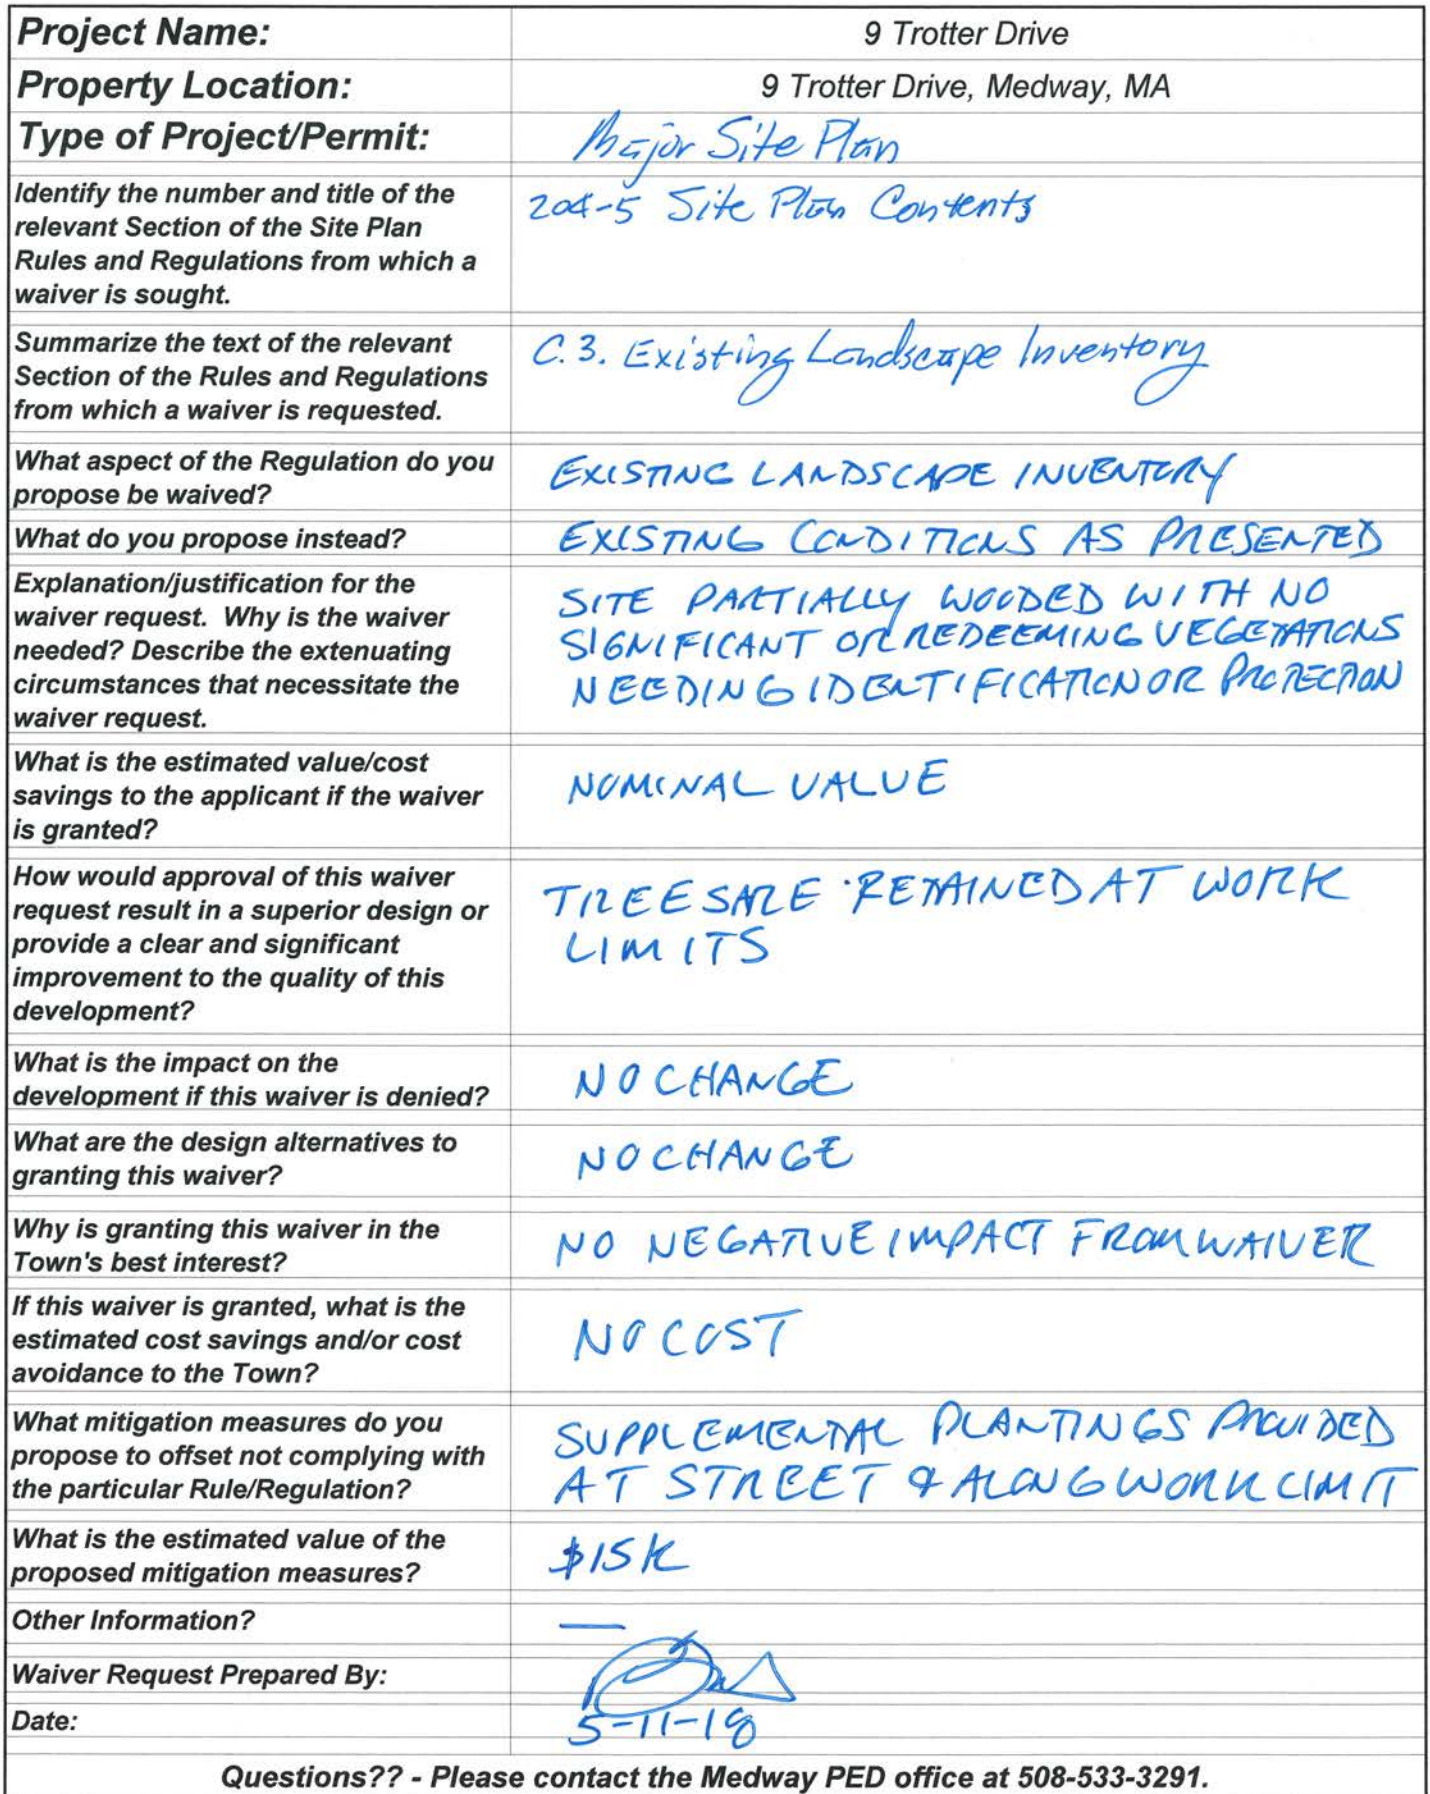 Project Name: 9 Trotter Drive
Property Location: 9 Trotter Drive, Medway, MA
Type of Project/Permit: Major Site Plan
Identify the number and title of the
relevant Section of the Site Plan
Rules and Regulations from which a
waiver is sought.
204-5 Site Plan Contents
Summarize the text of the relevant
Section of the Rules and Regulations
from which a waiver is requested.
C.3. Existing Landscape Inventory
What aspect of the Regulation do you
propose be waived?
EXISTING LANDSCAPE INVENTORY
What do you propose instead? EXISTING CONDITIONS AS PRESENTED
Explanation/justification for the
waiver request. Why is the waiver
needed? Describe the extenuating
circumstances that necessitate the
waiver request.
SITE PARTIALLY WOODED WITH NO
SIGNIFICANT OR REDEEMING VEGETATIONS
NEEDING IDENTIFICATION OR PROTECTION
What is the estimated value/cost
savings to the applicant if the waiver
is granted?
NOMINAL VALUE
How would approval of this waiver
request result in a superior design or
provide a clear and significant
improvement to the quality of this
development?
TREES ARE RETAINED AT WORK
LIMITS
What is the impact on the
development if this waiver is denied?
NO CHANGE
What are the design alternatives to
granting this waiver?
NO CHANGE
Why is granting this waiver in the
Town's best interest?
NO NEGATIVE IMPACT FROM WAIVER
If this waiver is granted, what is the
estimated cost savings and/or cost
avoidance to the Town?
NO COST
What mitigation measures do you
propose to offset not complying with
the particular Rule/Regulation?
SUPPLEMENTAL PLANTINGS PROVIDED
AT STREET & ALONG WORK LIMIT
What is the estimated value of the
proposed mitigation measures?
$15K
Other Information? —
Waiver Request Prepared By:
Date: 5-11-18
Questions?? - Please contact the Medway PED office at 508-533-3291.